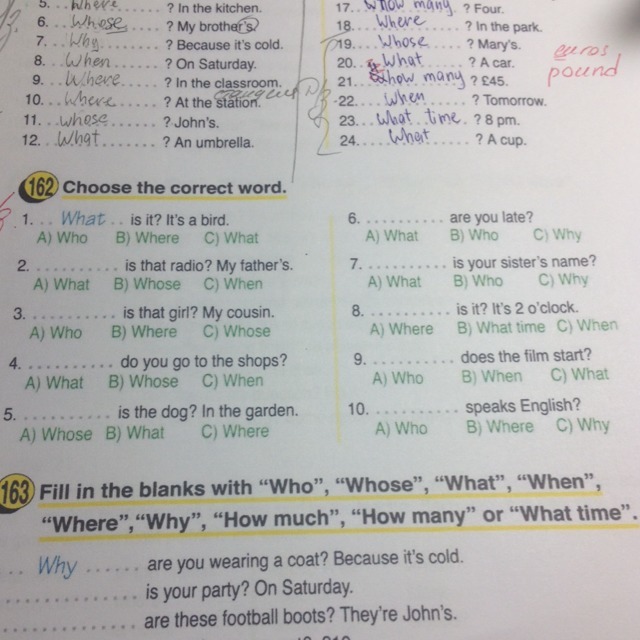 5. Where ? In the kitchen.
6. Whose ? My brother's.
7. Why ? Because it's cold.
8. When ? On Saturday.
9. Where ? In the classroom.
10. Where ? At the station.
11. whose ? John's.
12. What ? An umbrella.
17. how many ? Four.
18. Where ? In the park.
19. Whose ? Mary's.
20. What ? A car.
21. how many ? £45.
22. When ? Tomorrow.
23. What time ? 8 pm.
24. What ? A cup.
euros
pound
162 Choose the correct word.
1. What is it? It's a bird.
A) Who B) Where C) What
2. .......... is that radio? My father's.
A) What B) Whose C) When
3. .......... is that girl? My cousin.
A) Who B) Where C) Whose
4. .......... do you go to the shops?
A) What B) Whose C) When
5. .......... is the dog? In the garden.
A) Whose B) What C) Where
6. .......... are you late?
A) What B) Who C) Why
7. .......... is your sister's name?
A) What B) Who C) Why
8. .......... is it? It's 2 o'clock.
A) Where B) What time C) When
9. .......... does the film start?
A) Who B) When C) What
10. .......... speaks English?
A) Who B) Where C) Why
163 Fill in the blanks with "Who", "Whose", "What", "When",
"Where", "Why", "How much", "How many" or "What time".
Why ...... are you wearing a coat? Because it's cold.
.............. is your party? On Saturday.
.............. are these football boots? They're John's.